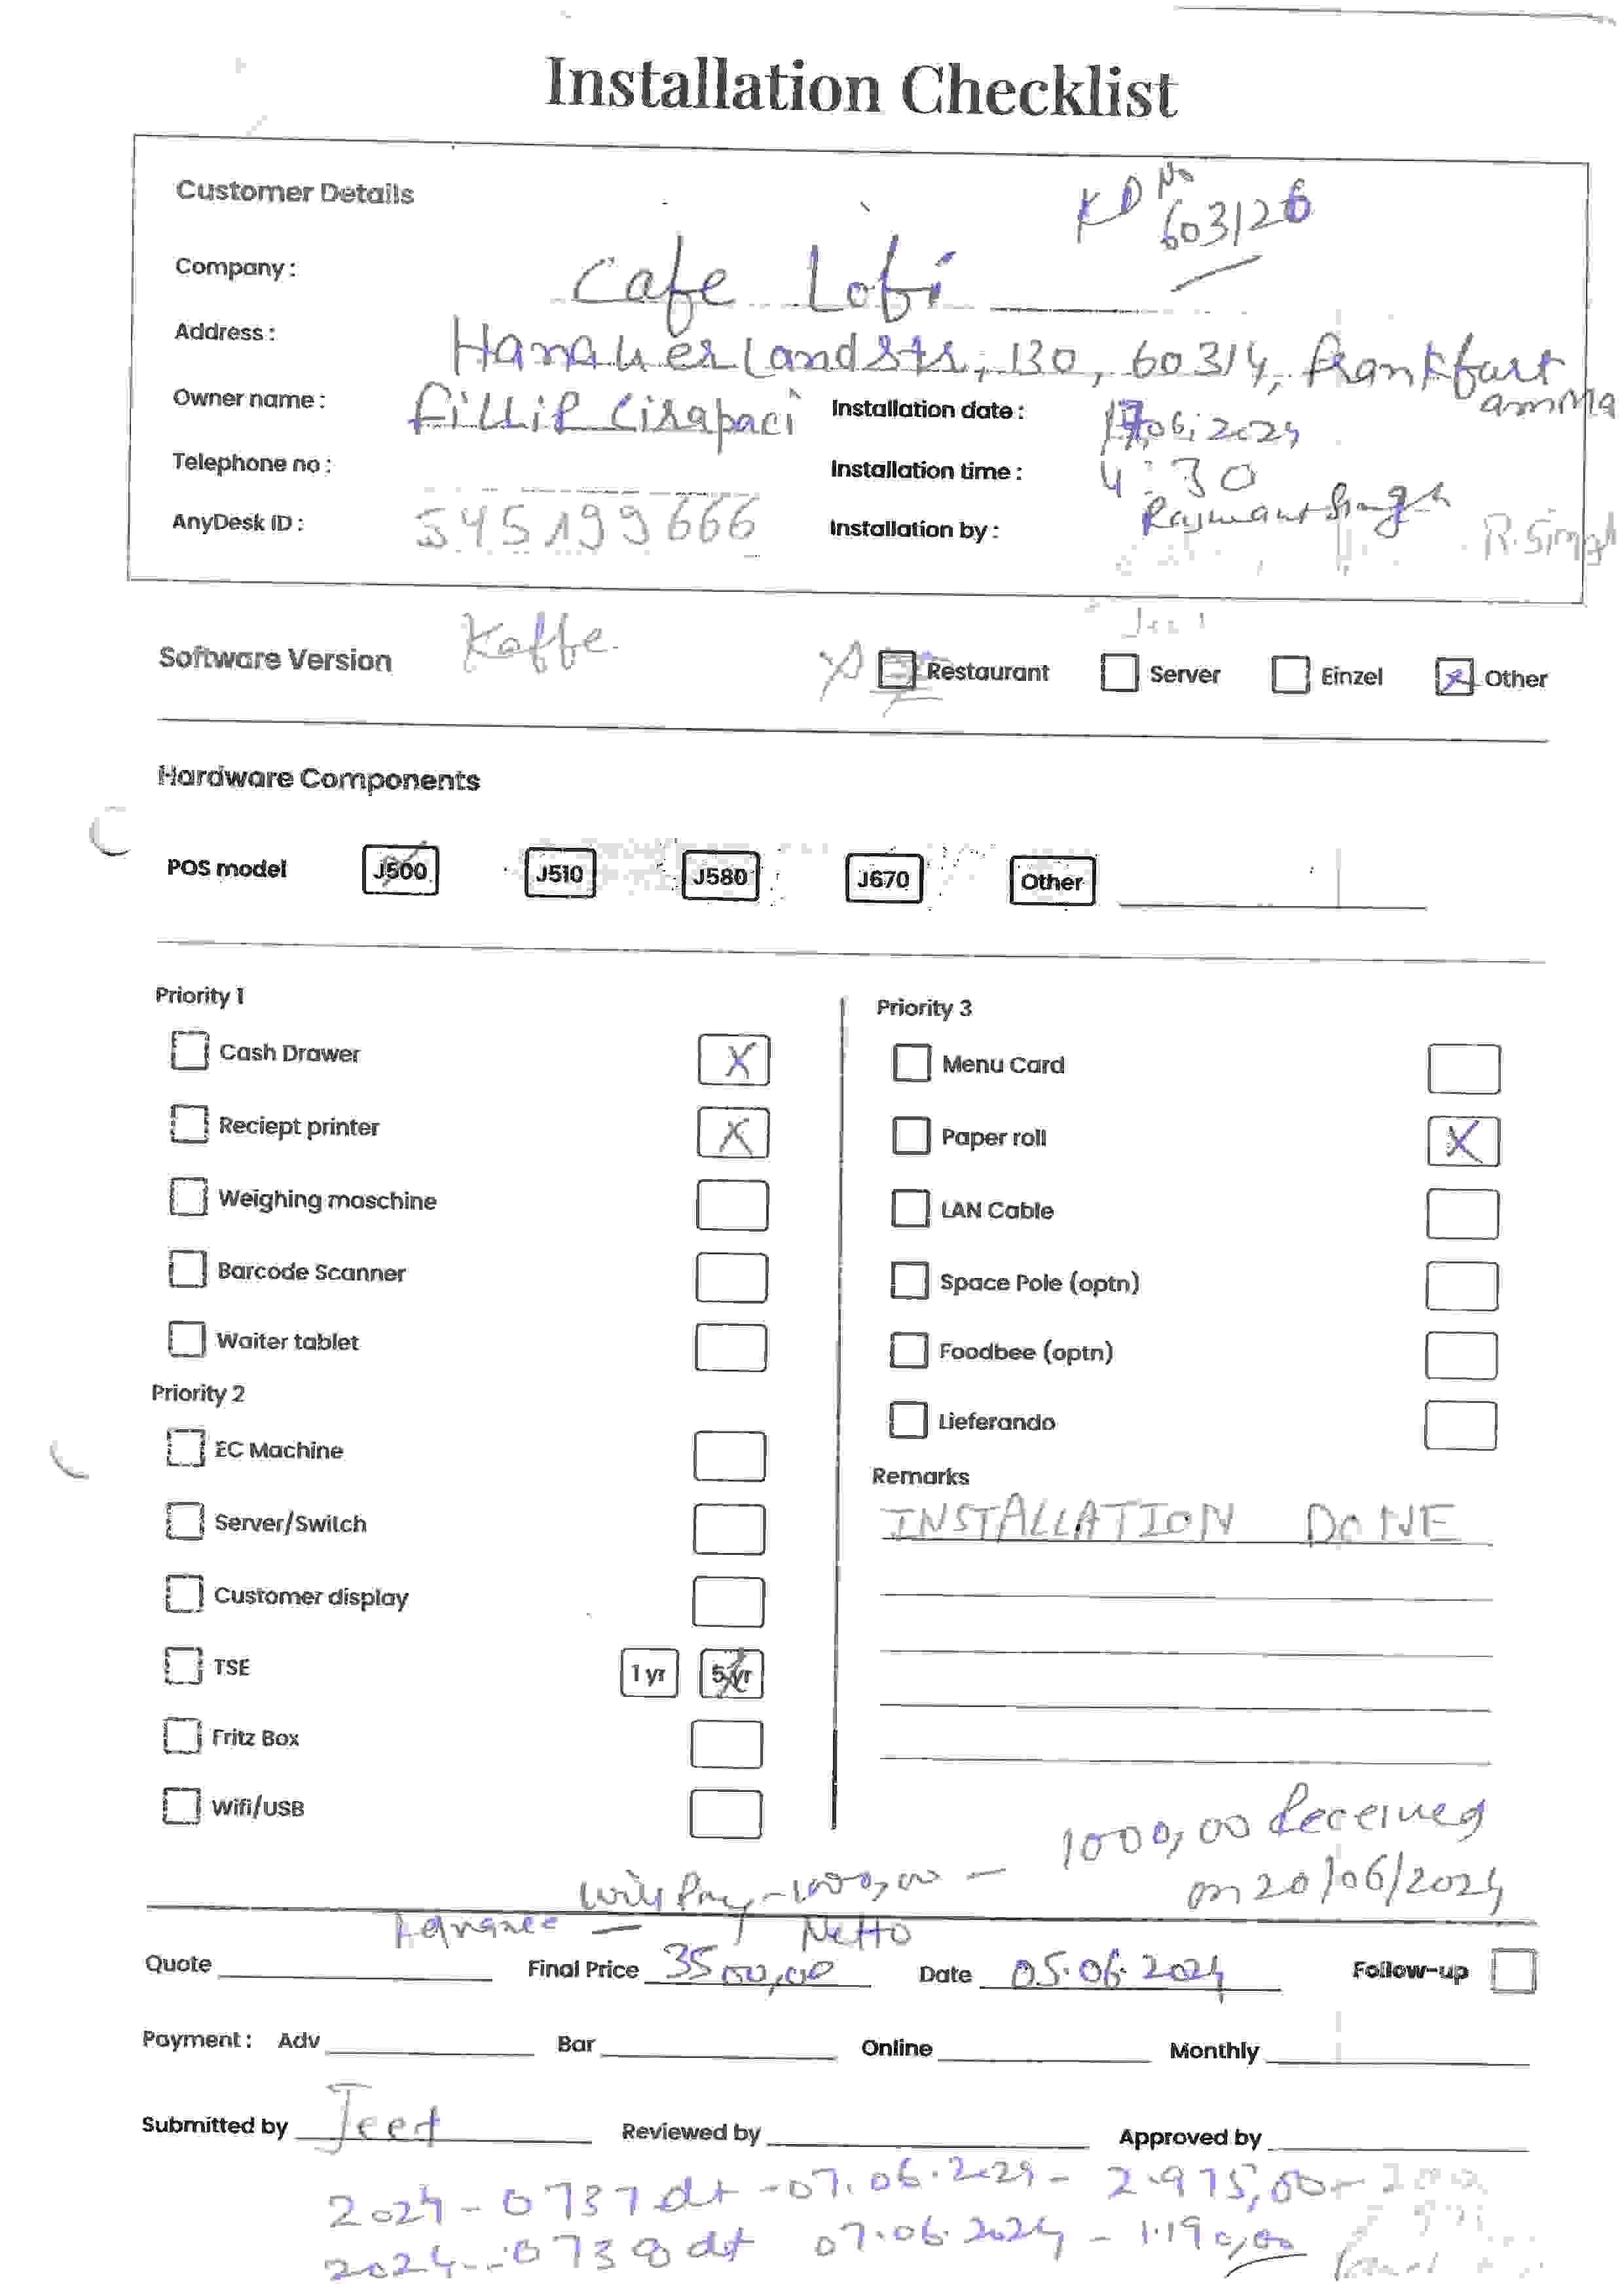 Installation Checklist
Customer Details
KD No 603126
Company : Cafe Lofi
Address : Hanauer Landstr, 130, 60314, Frankfurt
Owner name : Fillip Cirapaci
Installation date : 17.06.2024
Telephone no :
Installation time : 4:30
AnyDesk ID : 545199666
Installation by : Rajwant Singh R. Singh
Software Version Kaffe Restaurant Server Einzel Other
Hardware Components
POS model J500 J510 J580 J670 Other
Priority 1
Cash Drawer X
Reciept printer X
Weighing maschine
Barcode Scanner
Waiter tablet
Priority 2
EC Machine
Server/Switch
Customer display
TSE 1 yr 5 yr
Fritz Box
Wifi/USB
Priority 3
Menu Card
Paper roll X
LAN Cable
Space Pole (optn)
Foodbee (optn)
Lieferando
Remarks
INSTALLATION DONE
1000,00 Received
on 20/06/2024
will Pay - 1000,00 -
Advance - Netto
Quote Final Price 3500,00 Date 05.06.2024 Follow-up
Payment : Adv Bar Online Monthly
Submitted by Jeet Reviewed by Approved by
2024 - 0737 dt - 07.06.2024 - 2.975,00
2024 - 0738 dt 07.06.2024 - 1.190,00